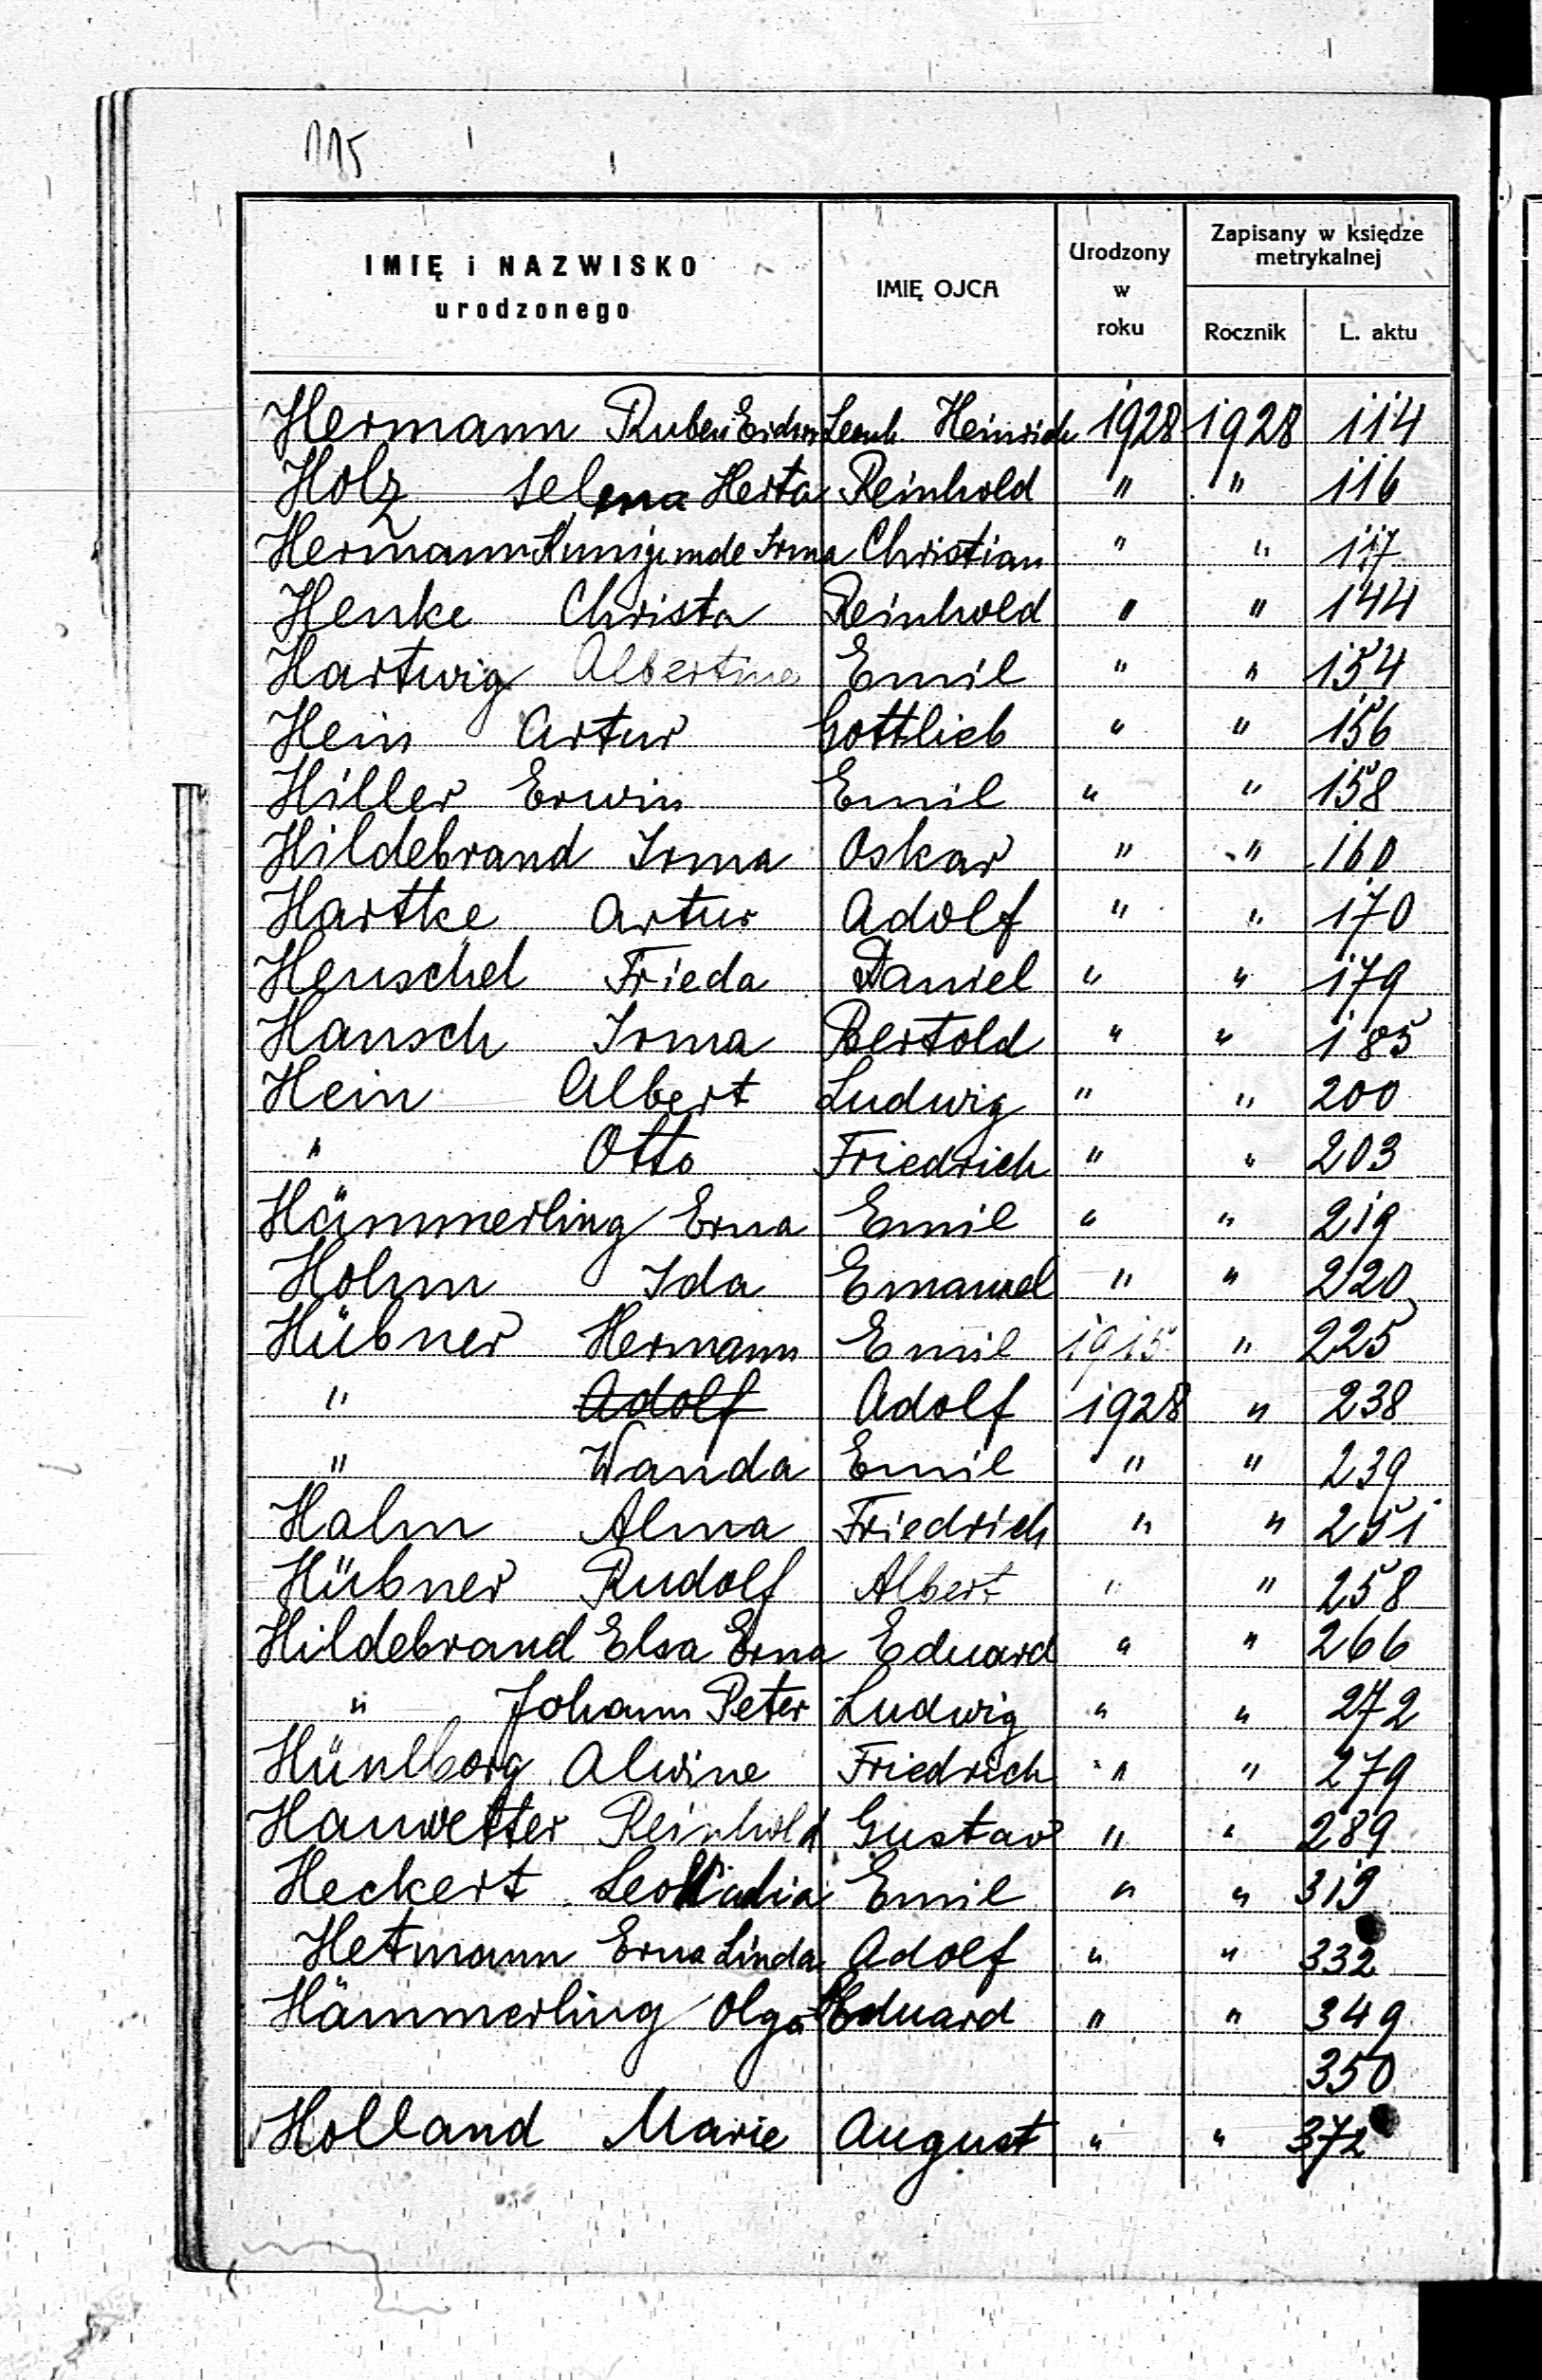 115
IMIĘ i NAZWISKO urodzonego IMIĘ OJCA Urodzony w roku Zapisany w księdze metrykalnej
Rocznik L. aktu
Hermann Ruben Heinrich 1928 1928 114
Holz Selma Herta Reinhold " " 116
Hermann Kunigunde Irma Christian " " 117
Henke Christa Reinhold " " 144
Hartwig Albertine Emil " " 154
Hein Artur Gottlieb " " 156
Hiller Erwin Emil " " 158
Hildebrand Irma Oskar " " 160
Hartke Artur Adolf " " 170
Henschel Frieda Daniel " " 179
Hansch Irma Bertold " " 185
Hein Albert Ludwig " " 200
" Otto Friedrich " " 203
Hämmerling Erna Emil " " 219
Holm Ida Emanuel " " 220
Hübner Hermann Emil 1915 " 225
" Adolf Adolf 1928 " 238
" Wanda Emil " " 239
Halm Alma Friedrich " " 251
Hübner Rudolf Albert " " 258
Hildebrand Elsa Erna Eduard " " 266
" Johann Peter Ludwig " " 272
Alwine Friedrich " " 279
Hauwetter Reinhold Gustav " " 289
Heckert Leokadia Emil " " 319
Hetmann Erna Linda Adolf " " 332
Hämmerling Olga Eduard " " 349
350
Holland Marie August " " 372